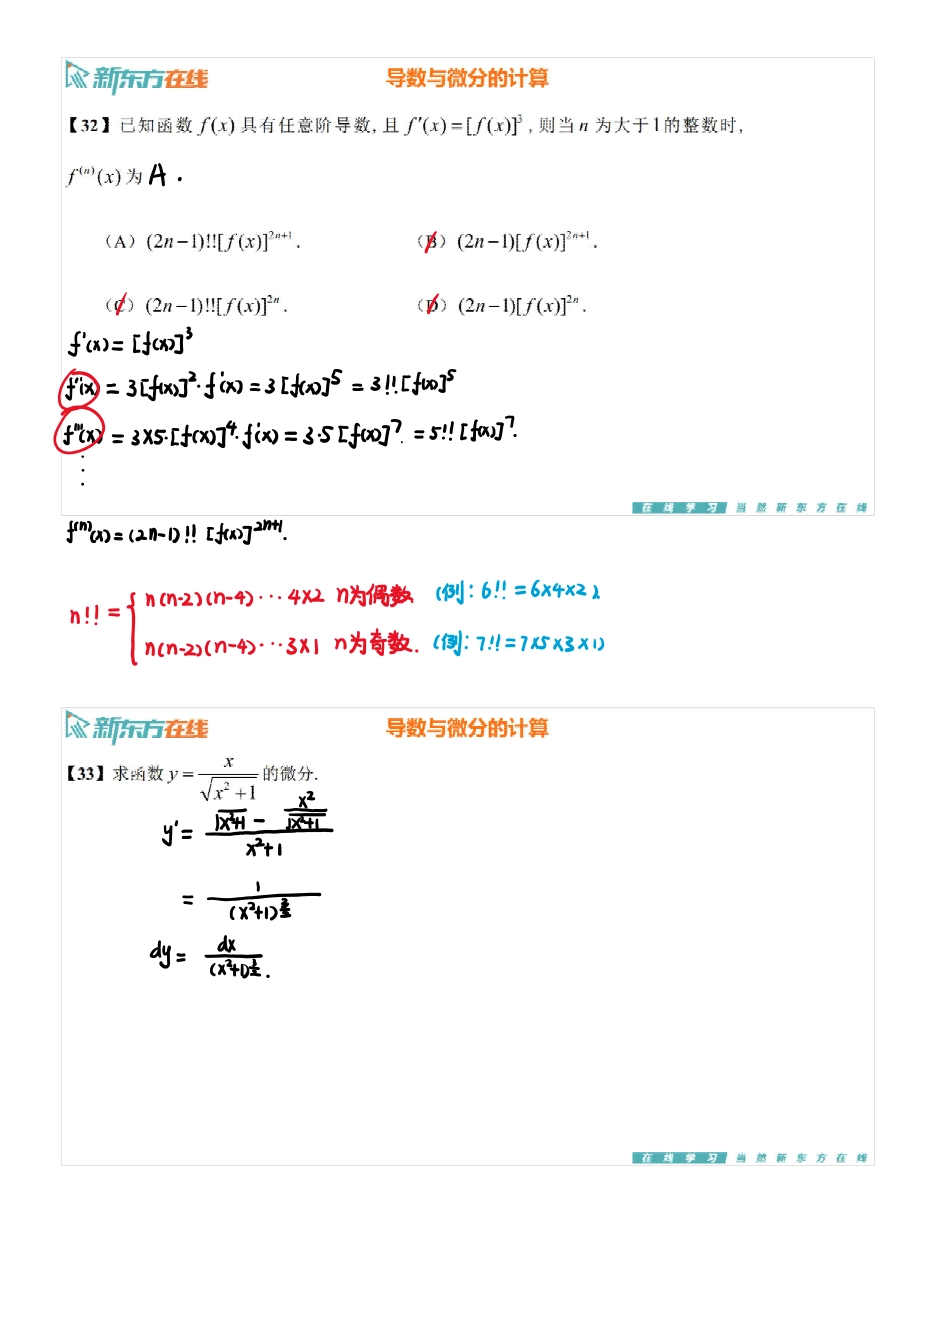 新东方在线 导数与微分的计算
【32】已知函数 f(x) 具有任意阶导数, 且 f′(x)=[f(x)]³, 则当 n 为大于1的整数时,
f⁽ⁿ⁾(x) 为 A.
(A) (2n−1)!![f(x)]²ⁿ⁺¹. (B) (2n−1)[f(x)]²ⁿ⁺¹.
(C) (2n−1)!![f(x)]²ⁿ. (D) (2n−1)[f(x)]²ⁿ.
f′(x)=[f(x)]³
f″(x)=3[f(x)]²·f′(x)=3[f(x)]⁵=3!![f(x)]⁵
f‴(x)=3×5·[f(x)]⁴·f′(x)=3·5[f(x)]⁷.=5!![f(x)]⁷.
⋮
在线学习 当然新东方在线
f⁽ⁿ⁾(x)=(2n-1)!![f(x)]²ⁿ⁺¹.
n!!={ n(n-2)(n-4)···4×2 n为偶数 (例:6!!=6×4×2)
n(n-2)(n-4)···3×1 n为奇数. (例:7!!=7×5×3×1)
新东方在线 导数与微分的计算
【33】求函数 y=x/√(x²+1) 的微分.
y′=(√(x²+1) − x²/√(x²+1))/(x²+1)
=1/(x²+1)^(3/2)
dy=dx/(x²+1)^(3/2).
在线学习 当然新东方在线